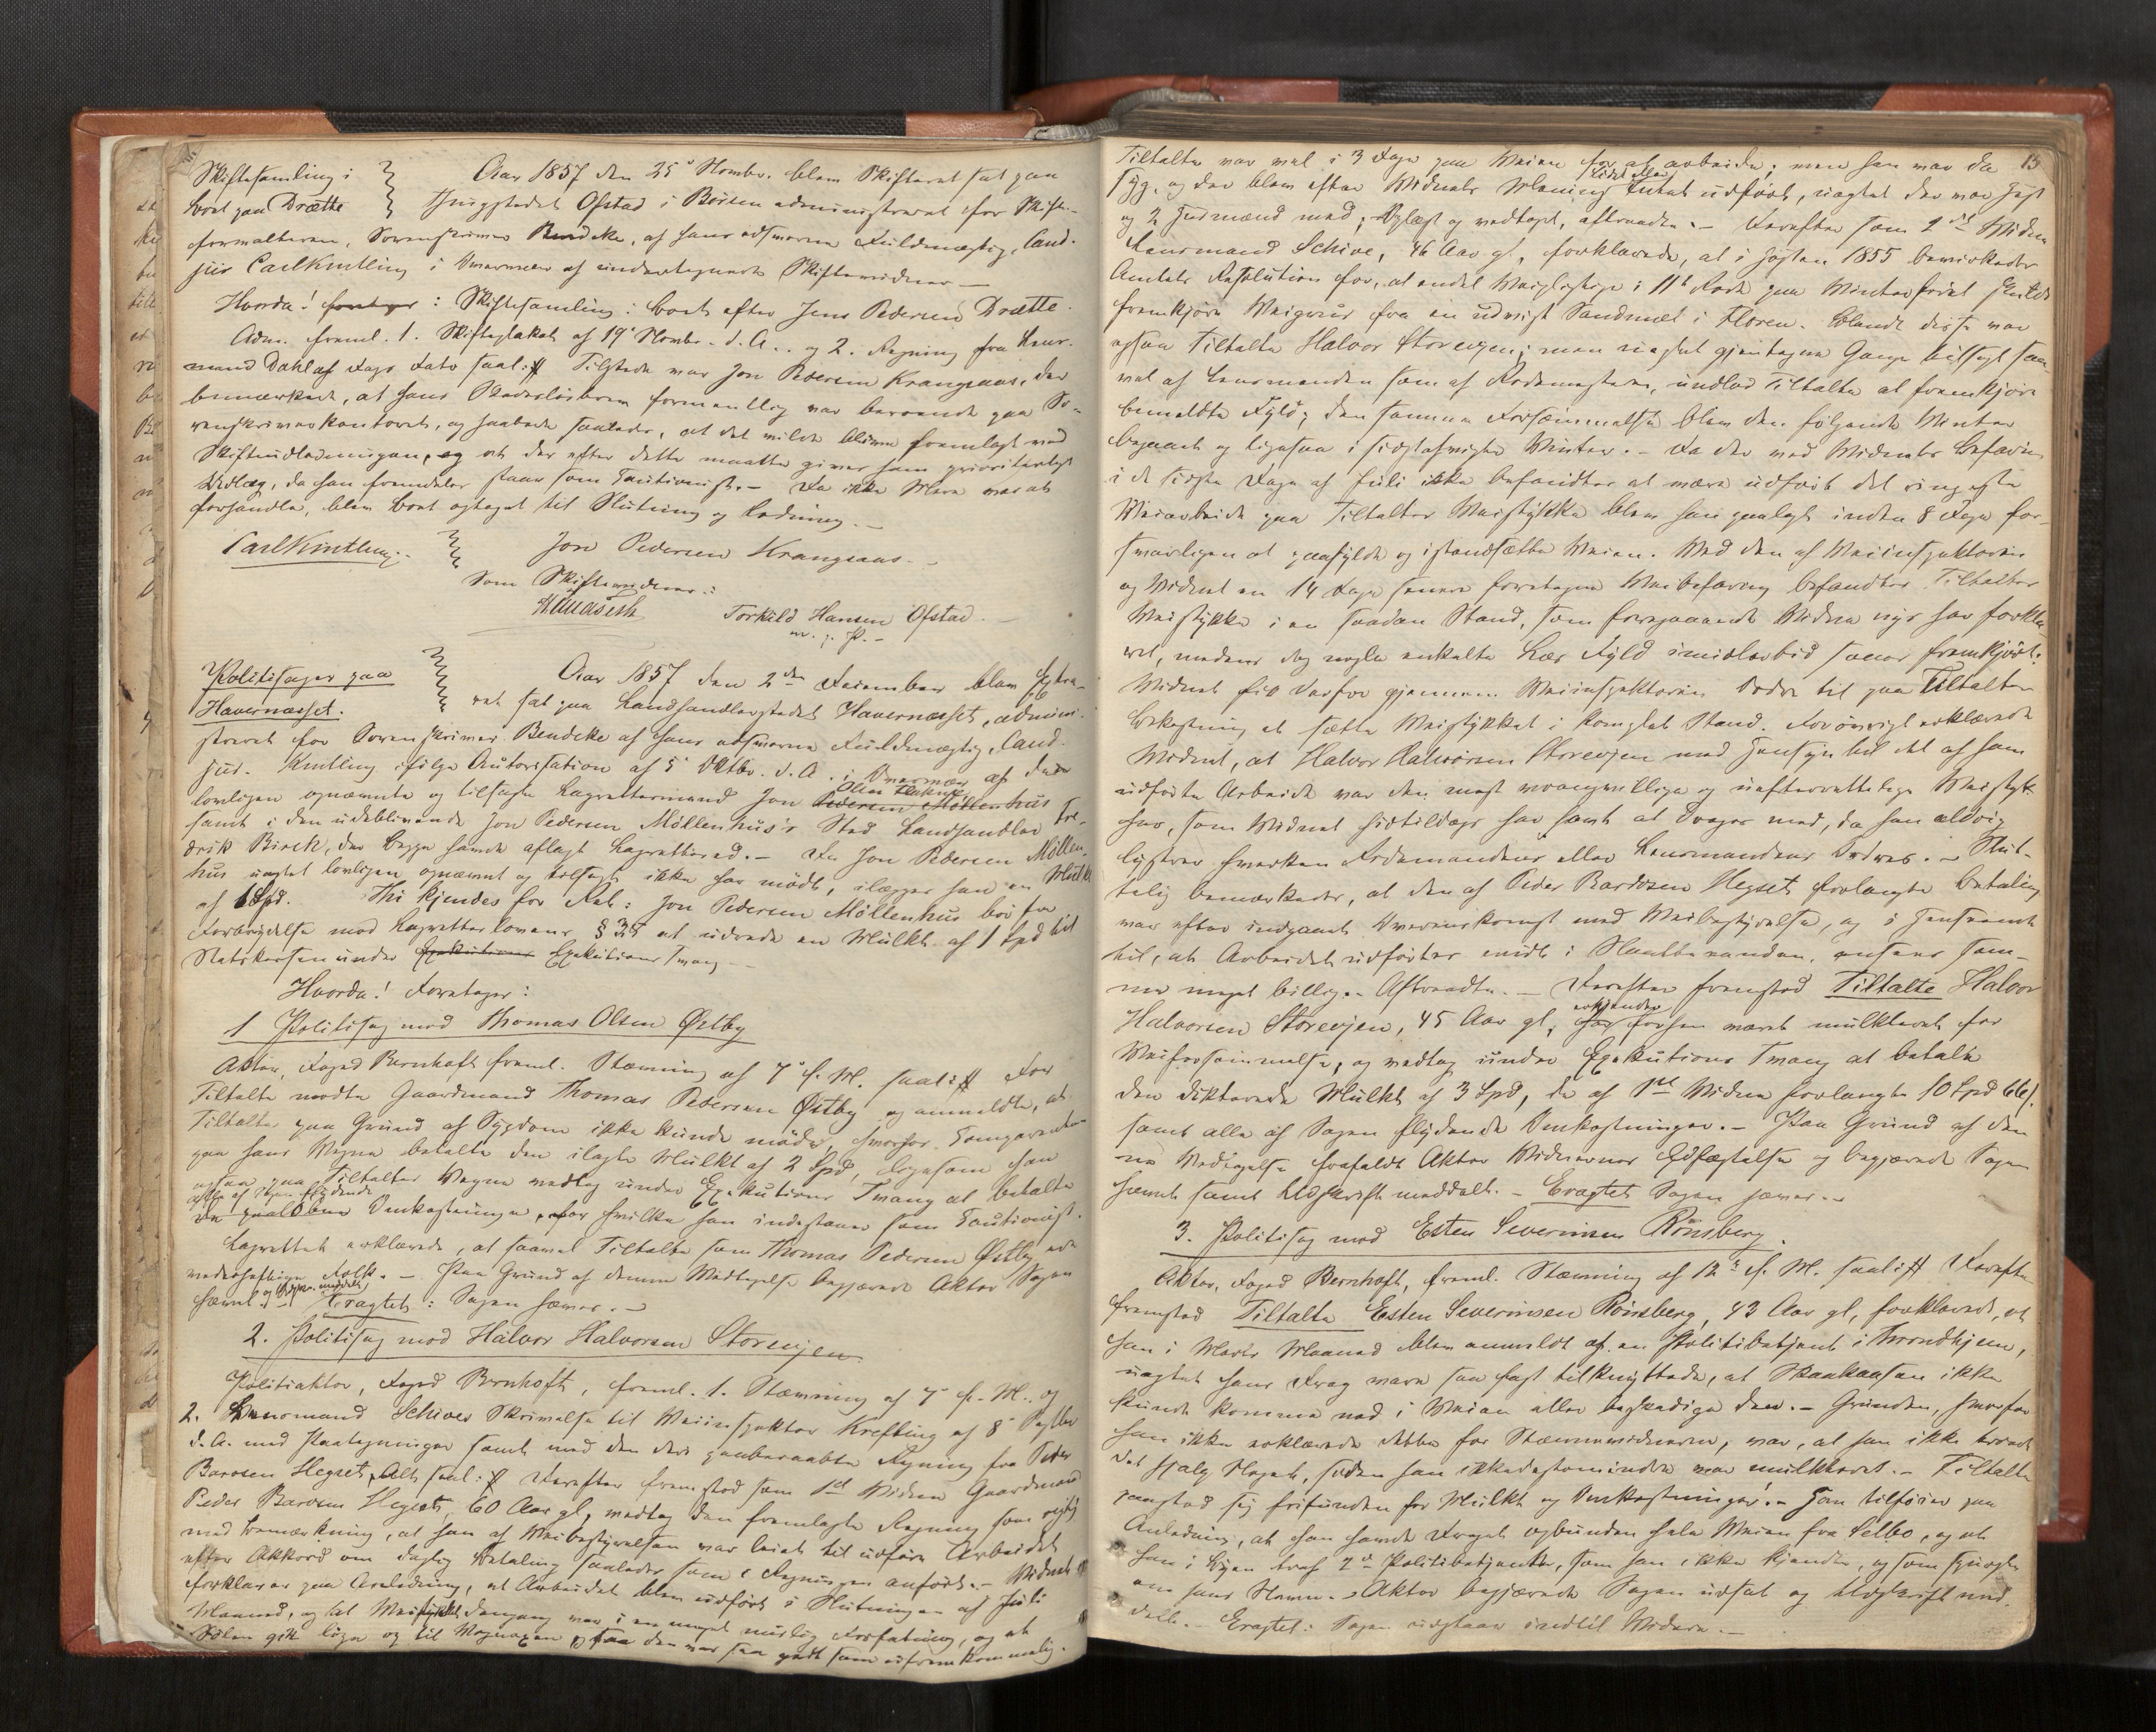 Skiftesamling i
boet paa Drætte
Aar 1857 den 25' Novembr. blev Skifteret sat paa
Thingstedet Ofstad i Börsen administreret for Skifte-
forvalteren, Sorenskriver Bendeke, af hans edsvorne Fuldmægtig, Cand.
jur Carl Kintling i Overvær af undertegnede Skiftevidner –
Hvorda! foretoges: Skiftesamling i boet efter Jens Pedersen Drætte.
Adm. freml. 1. Skifteplakat af 19' Novembr. d. A. og 2. Regning fra Lens-
mand Dahl af Dags Dato saal: # Tilstede var Jon Pedersen Krangsaas, der
bemærkede, at hans Skadesløsbrev formentlig var beroende paa So-
renskriverkontoret, og haabede saaledes, at det vilde blive fremlagt ved
Skifteudlodningen, og at der efter dette maatte gives ham prioriteret
Udlæg, da han fremdeles staar som Cautionist. – Da ikke Mere var at
forhandle, blev boet optaget til Slutning og Lodning. –
Carl Kintling. Jon Pedersen Krangsaas. –
Som Skiftevidner:
Torkild Hansen Ofstad
m. p. P. –
Politisager paa
Havernæsset.
Aar 1857 den 2den December blev Extra-
ret sat paa Landhandlerstedet Havernæsset, admini-
streret for Sorenskriver Bendeke af hans edsvorne Fuldmægtig, Cand.
jur. Kintling ifølge Autorisation af 5' Oktbr. d. A. i Overvær af den
lovligen opnævnte og tilsagte Lagrettemænd Jon Pedersen Möllenhus
samt i den udeblivende Jon Pedersen Möllenhus's Sted Landhandler Fre-
drik Birch, der begge havde aflagt Lagretteed. – Da Jon Pedersen Möllen-
hus uagtet lovligen opnævnt og tilsagt ikke har mödt, ilægges han en Mulkt
af 1 Spd. Thi kjendes for Ret: Jon Pedersen Möllenhus bör for
Forbrydelse mod Lagrettelovens § 35 at udrede en Mulkt af 1 Spd til
Statskassen under Exekutions Tvang –
Hvorda! Foretoges:
1 Politisag mod Thomas Olsen Østby
Aktor, Foged Bernhoft freml. Stævning af 7' f. M. saal: # For
Tiltalte mødte Gaardmand Thomas Pedersen Østby og anmeldte, at
Tiltalte paa Grund af Sygdom ikke kunde møde, hvorfor Comparenten
paa hans Vegne betalte den ilagte Mulkt af 2 Spd, ligesom han
ogsaa paa Tiltaltes Vegne vedtog under Exekutions Tvang at betale
de af Sagen flydende Omkostninger, for hvilke han indestaar som Cautionist.
Lagrettet erklærede, at saavel Tiltalte som Thomas Pedersen Østby ere
vederhæftige Folk. – Paa Grund af denne Vedtagelse begjærede Aktor Sagen
hævet og Udskr. meddelt. Eragtet: Sagen hæves. –
2. Politisag mod Halvor Halvorsen Storevjen
Politiaktor, Foged Bernhoft, freml. 1. Stævning af 7' f. M. og
2. Lensmand Schives Skrivelse til Veiinspektør Krefting af 8' Septbr
d. A. med Paategninger samt med den deri paaberaabte Regning fra Peder
Barosen Hegset, Alt saal: # Derefter fremstod som 1ste Vidne Gaardmand
Peder Barosen Hegset, 60 Aar gl, vedtog den fremlagte Regning som rigtig
med Bemærkning, at han af Veibestyrelsen var leiet til udføre Arbeidet
efter Akkord om daglig Betaling saaledes som i Regningen anført. – Vidnet
forklarer paa Anledning, at Arbeidet blev udført i Slutningen af Juli
Maaned, og at Veistykket dengang var i en meget maadelig Forfatning, og at
Sølen gik lige op til Vognaxen, saa den var saa godt som ufremkommelig.
13
Tiltalte var vel i 3 Dage paa Veien for at arbeide; men han var da
syg, og der blev efter Vidnets Mening lidet eller Intet udført, uagtet der var Hest
og 2 Husmænd med; Oplæst og vedtaget, aftraadte. – Derefter som 2det Vidne
Lensmand Schive, 46 Aar gl, forklarede, at i Høsten 1855 bevirkedes
Amtets Resolution for, at endel Veipligtige i 11te Rode paa Vinterføret skulde
fremkjøre Veigruus fra en udvist Sandmæl i Floren. Blandt disse var
ogsaa Tiltalte Halvor Storevjen; men uagtet gjentagne Gange tilsagt saa-
vel af Lensmanden som af Rodemesteren, undlod Tiltalte at fremkjøre
bemeldte Fyld; den samme Forsømmelse blev den følgende Vinter
begaaet og ligesaa i sidstafvigte Vinter. – Da der ved Vidnets Befaring
i de sidste Dage af Juli ikke befandtes at være udført det ringeste
Veiarbeide paa Tiltaltes Veistykke blev han paalagt inden 8 Dage for-
svarligen at paafylde og istandsætte Veien. Ved den af Veiinspektøren
og Vidnet en 14 Dage senere foretagne Veibefaring befandtes Tiltaltes
Veistykke i en saadan Stand, som foregaaende Vidne nys har forkla-
ret, medens dog nogle enkelte Læs Fyld imidlertid vare fremkjørt.
Vidnet fik derfor gjennem Veiinspektøren Ordre til paa Tiltaltes
Bekostning at sætte Veistykket i komplet Stand. Forøvrigt erklærede
Vidnet, at Halvor Halvorsen Storevjen med Hensyn til det af ham
udførte Arbeide var den mest vrangvillige og uefterrettelige Veistyk-
ker, som Vidnet hidtildags har havt at drages med, da han aldrig
lystrer hverken Rodemandens eller Lensmandens Ordres. – Slut-
telig bemærkedes, at den af Peder Barosen Hegset forlangte Betaling
var efter indgaaet Overenskomst med Veibestyrelse, og i Henseende
til, at Arbeidet udførtes midt i Slaatteaanden, ansees som
meget billig. – Aftraadte. – Derefter fremstod Tiltalte Halvor
Halvorsen Storevjen, 45 Aar gl, erkjender forhen været mulkteret for
Veiforsømmelse, og vedtog under Exekutions Tvang at betale
den dikterede Mulkt af 3 Spd, de af 1ste Vidne forlangte 10 Spd 66 s.
samt alle af Sagen flydende Omkostninger. – Paa Grund af den-
ne Vedtagelse frafaldt Aktor Vidnernes Edfæstelse og begjærede Sagen
hævet samt Udskrift meddelt. – Eragtet Sagen hæves. –
3. Politisag mod Esten Severinsen Rønsberg.
Aktor, Foged Bernhoft, freml. Stævning af 12' f. M. saal: # Derefter
fremstod Tiltalte Esten Severinsen Rönsberg, 43 Aar gl, forklarede, at
han i Marts Maaned blev anmeldt af en Politibetjent i Throndhjem,
uagtet hans Drag vare saa fast tilknyttede, at Skaakaasen ikke
kunde komme ned i Veien eller beskadige den. – Grunden, hvorfor
han ikke erklærede dette for Stævnevidnerne, var, at han ikke troede
det hjalp Noget, siden han ikkedestomindre var mulkteret. – Tiltalte
paastod sig frifunden for Mulkt og Omkostninger. – Han tilføier paa
Anledning, at han havde Draget opbunden hele Veien fra Selbo, og at
han i Byen traf 2de Politibetjente, som han ikke kjendte, og som spurgte
om hans Navn. – Aktor begjærede Sagen udsat og Udskrift med-
delt. – Eragtet: Sagen udstaar indtil Videre. –